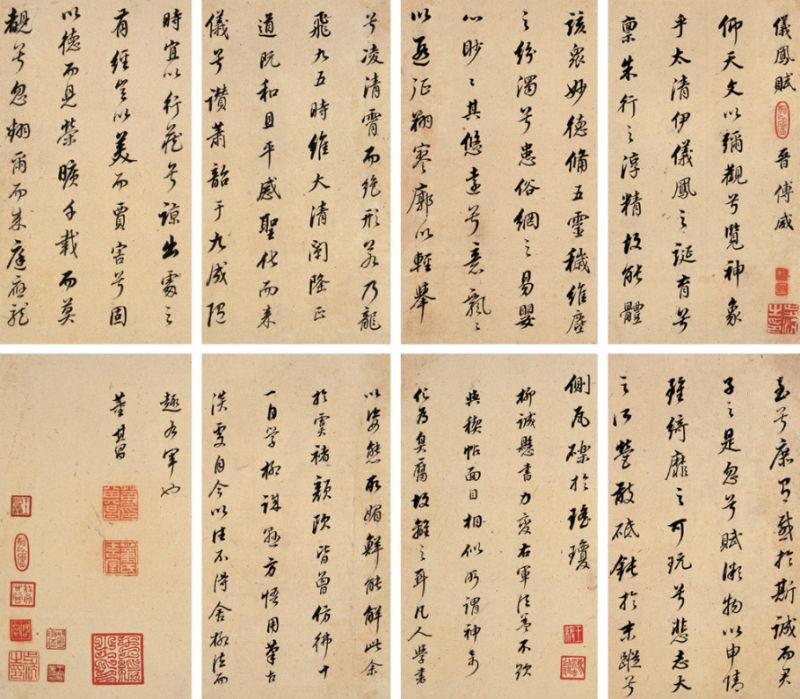 儀鳳賦 晉傅咸
仰天文以彌觀兮覽神象
乎太清伊儀鳳之誕育兮
稟朱行之淳精故能體
該衆妙德備五靈穢維塵
之紛濁兮患俗網之易嬰
心眇眇其悠遠兮意飄飄
以遐征翔寥廓以輕舉
兮凌清霄而絶形若乃龍
飛九五時維大清闡隆正
道既和且平感聖化而来
儀兮讚蕭韶于九成隨
時宜以行藏兮諒出處之
有經豈以美而賈害兮固
以德而見榮曠千載而莫
覩兮忽翔爾而來庭應龍
至兮庶有感於斯誠而君
子之是忽兮賦微物以申情
雖綺靡之可玩兮悲志大
之所營敢砥鈍於末蹤兮
側瓦礫於瑤瓊
柳誠懸書力變右軍法蓋不欲
與禊帖面目相似所謂神奇
化爲臭腐故離之耳凡人學書
以姿態取媚鮮能解此余
於虞褚顏歐皆曾仿彿十
一自學柳誠懸方悟用筆古
淡處自今以往不得舍柳法而
趨右軍也
董其昌